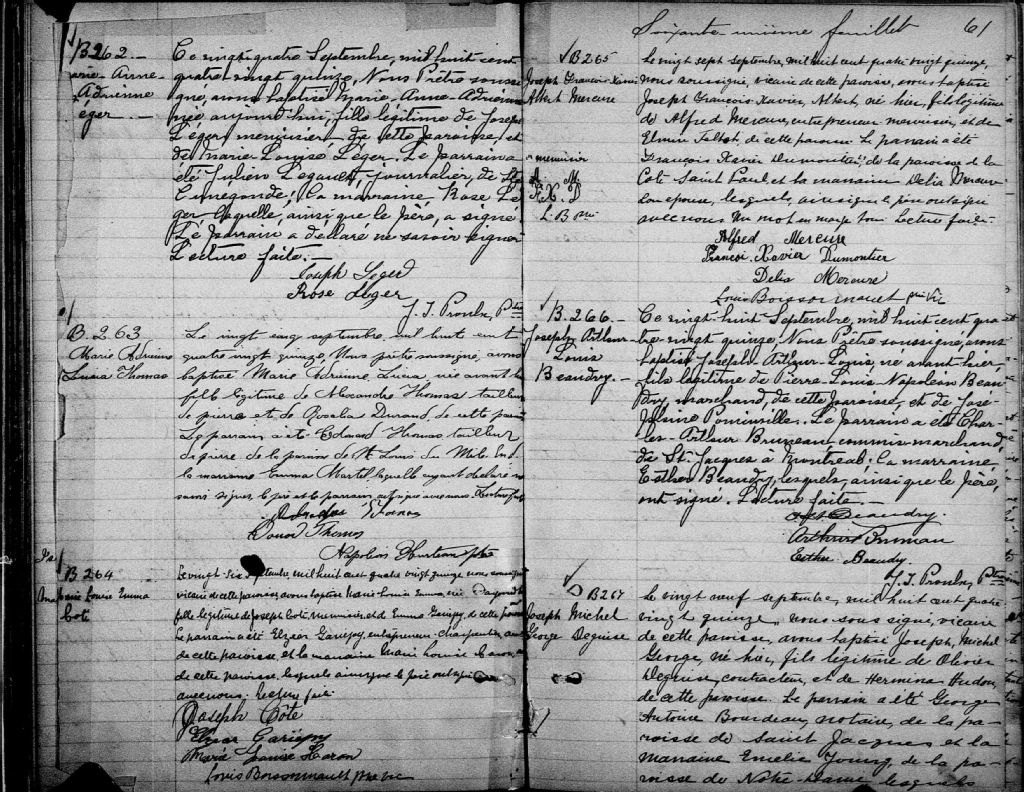 B262
Marie-Anne-
Adrienne
Léger.
Ce vingt-quatre Septembre, mil huit cent
quatre vingt quinze, Nous Prêtre sous-
igné, avons baptisé Marie-Anne-Adrienne
née aujourd'hui, fille légitime de Joseph
Léger menuisier, de cette paroisse, et
de Marie Louise Léger. Le parrain a
été Julien Legault, journalier, de Ste
Cunégonde; La marraine Rose Lé-
ger laquelle, ainsi que le père, a signé.
Le parrain a déclaré ne savoir signer
Lecture faite.
Joseph Leger
Rose Leger
J. T. Ptre
B.263
Marie Adrienne
Lucia Thomas
Le vingt cinq septembre mil huit cent
quatre vingt quinze, Nous prêtre soussigné, avons
baptisé Marie Adrienne Lucia née avant hier
fille légitime de Alexandre Thomas tailleur
de pierre et de Rosalba Durand de cette paroisse
Le parrain a été Edouard Thomas tailleur
de pierre de la paroisse de St Louis du Mile End
la marraine Emma Martel, laquelle ayant déclaré ne
savoir signer, le père et le parrain ont signé avec nous Lecture faite
Thomas
Napoléon ptre
B 264
Marie Louise Emma
Coté
Le vingt six Septembre, mil huit cent quatre vingt quinze nous soussigné
vicaire de cette paroisse, avons baptisé Marie Louise Emma, née
fille légitime de Joseph Coté, menuisier, et d'Emma Gariepy, de cette paroisse
Le parrain a été Elzéar Gariepy, entrepreneur charpentier, aussi
de cette paroisse, et la marraine Marie Louise Caron,
de cette paroisse, lesquels ainsi que le père ont signé
avec nous. Lecture faite
Joseph Côté
Elzear Gariepy
Marie Louise Caron
Louis Boissonnault ptre vic
Soixante-unième feuillet 61
B265
Joseph François Xavier
Albert Mercure
menuisier
A. M
F. X. D
L. B
Le vingt sept Septembre, mil huit cent quatre vingt quinze,
nous soussigné, vicaire de cette paroisse, avons baptisé
Joseph François-Xavier, Albert, né hier, fils légitime
de Alfred Mercure, entrepreneur menuisier, et de
Talbot, de cette paroisse. Le parrain a été
François Xavier Dumontier, de la paroisse de la
Côte Saint Paul, et la marraine Delia Mercure
son épouse, lesquels, ainsi que le père ont signé
avec nous. Un mot en marge bon. Lecture faite.
Alfred Mercure
Francoi. Xavier Dumontier
Delia Mercure
Louis Boissonnault ptre vic
B.266.
Joseph Arthur
Louis
Beaudry.
Ce vingt-huit Septembre, mil huit cent qua-
tre vingt quinze. Nous Prêtre soussigné, avons
baptisé Joseph-Arthur-Louis, né avant-hier,
fils légitime de Pierre-Louis Napoléon Beau-
dry, marchand, de cette paroisse, et de Jose-
phine Pominville. Le parrain a été Char-
les-Arthur Bruneau, commis-marchand,
de St. Jacques à Montreal: La marraine
Esther Beaudry, lesquels, ainsi que le père,
ont signé. Lecture faite.
Beaudry.
Arthur Bruneau
Esther Beaudry
J. T. Ptre
B267
Joseph Michel
George Deguise
Le vingt neuf septembre, mil huit cent quatre
vingt quinze, nous sous signé, vicaire
de cette paroisse, avons baptisé Joseph, Michel
George, né hier, fils légitime de Olivier
Deguise, contracteur, et de Hermina Hudon,
de cette paroisse. Le parrain a été George
Antoine Bourdeau, notaire, de la pa-
roisse de Saint Jacques et la
marraine Emelie Young, de la pa-
roisse de Notre-Dame lesquels